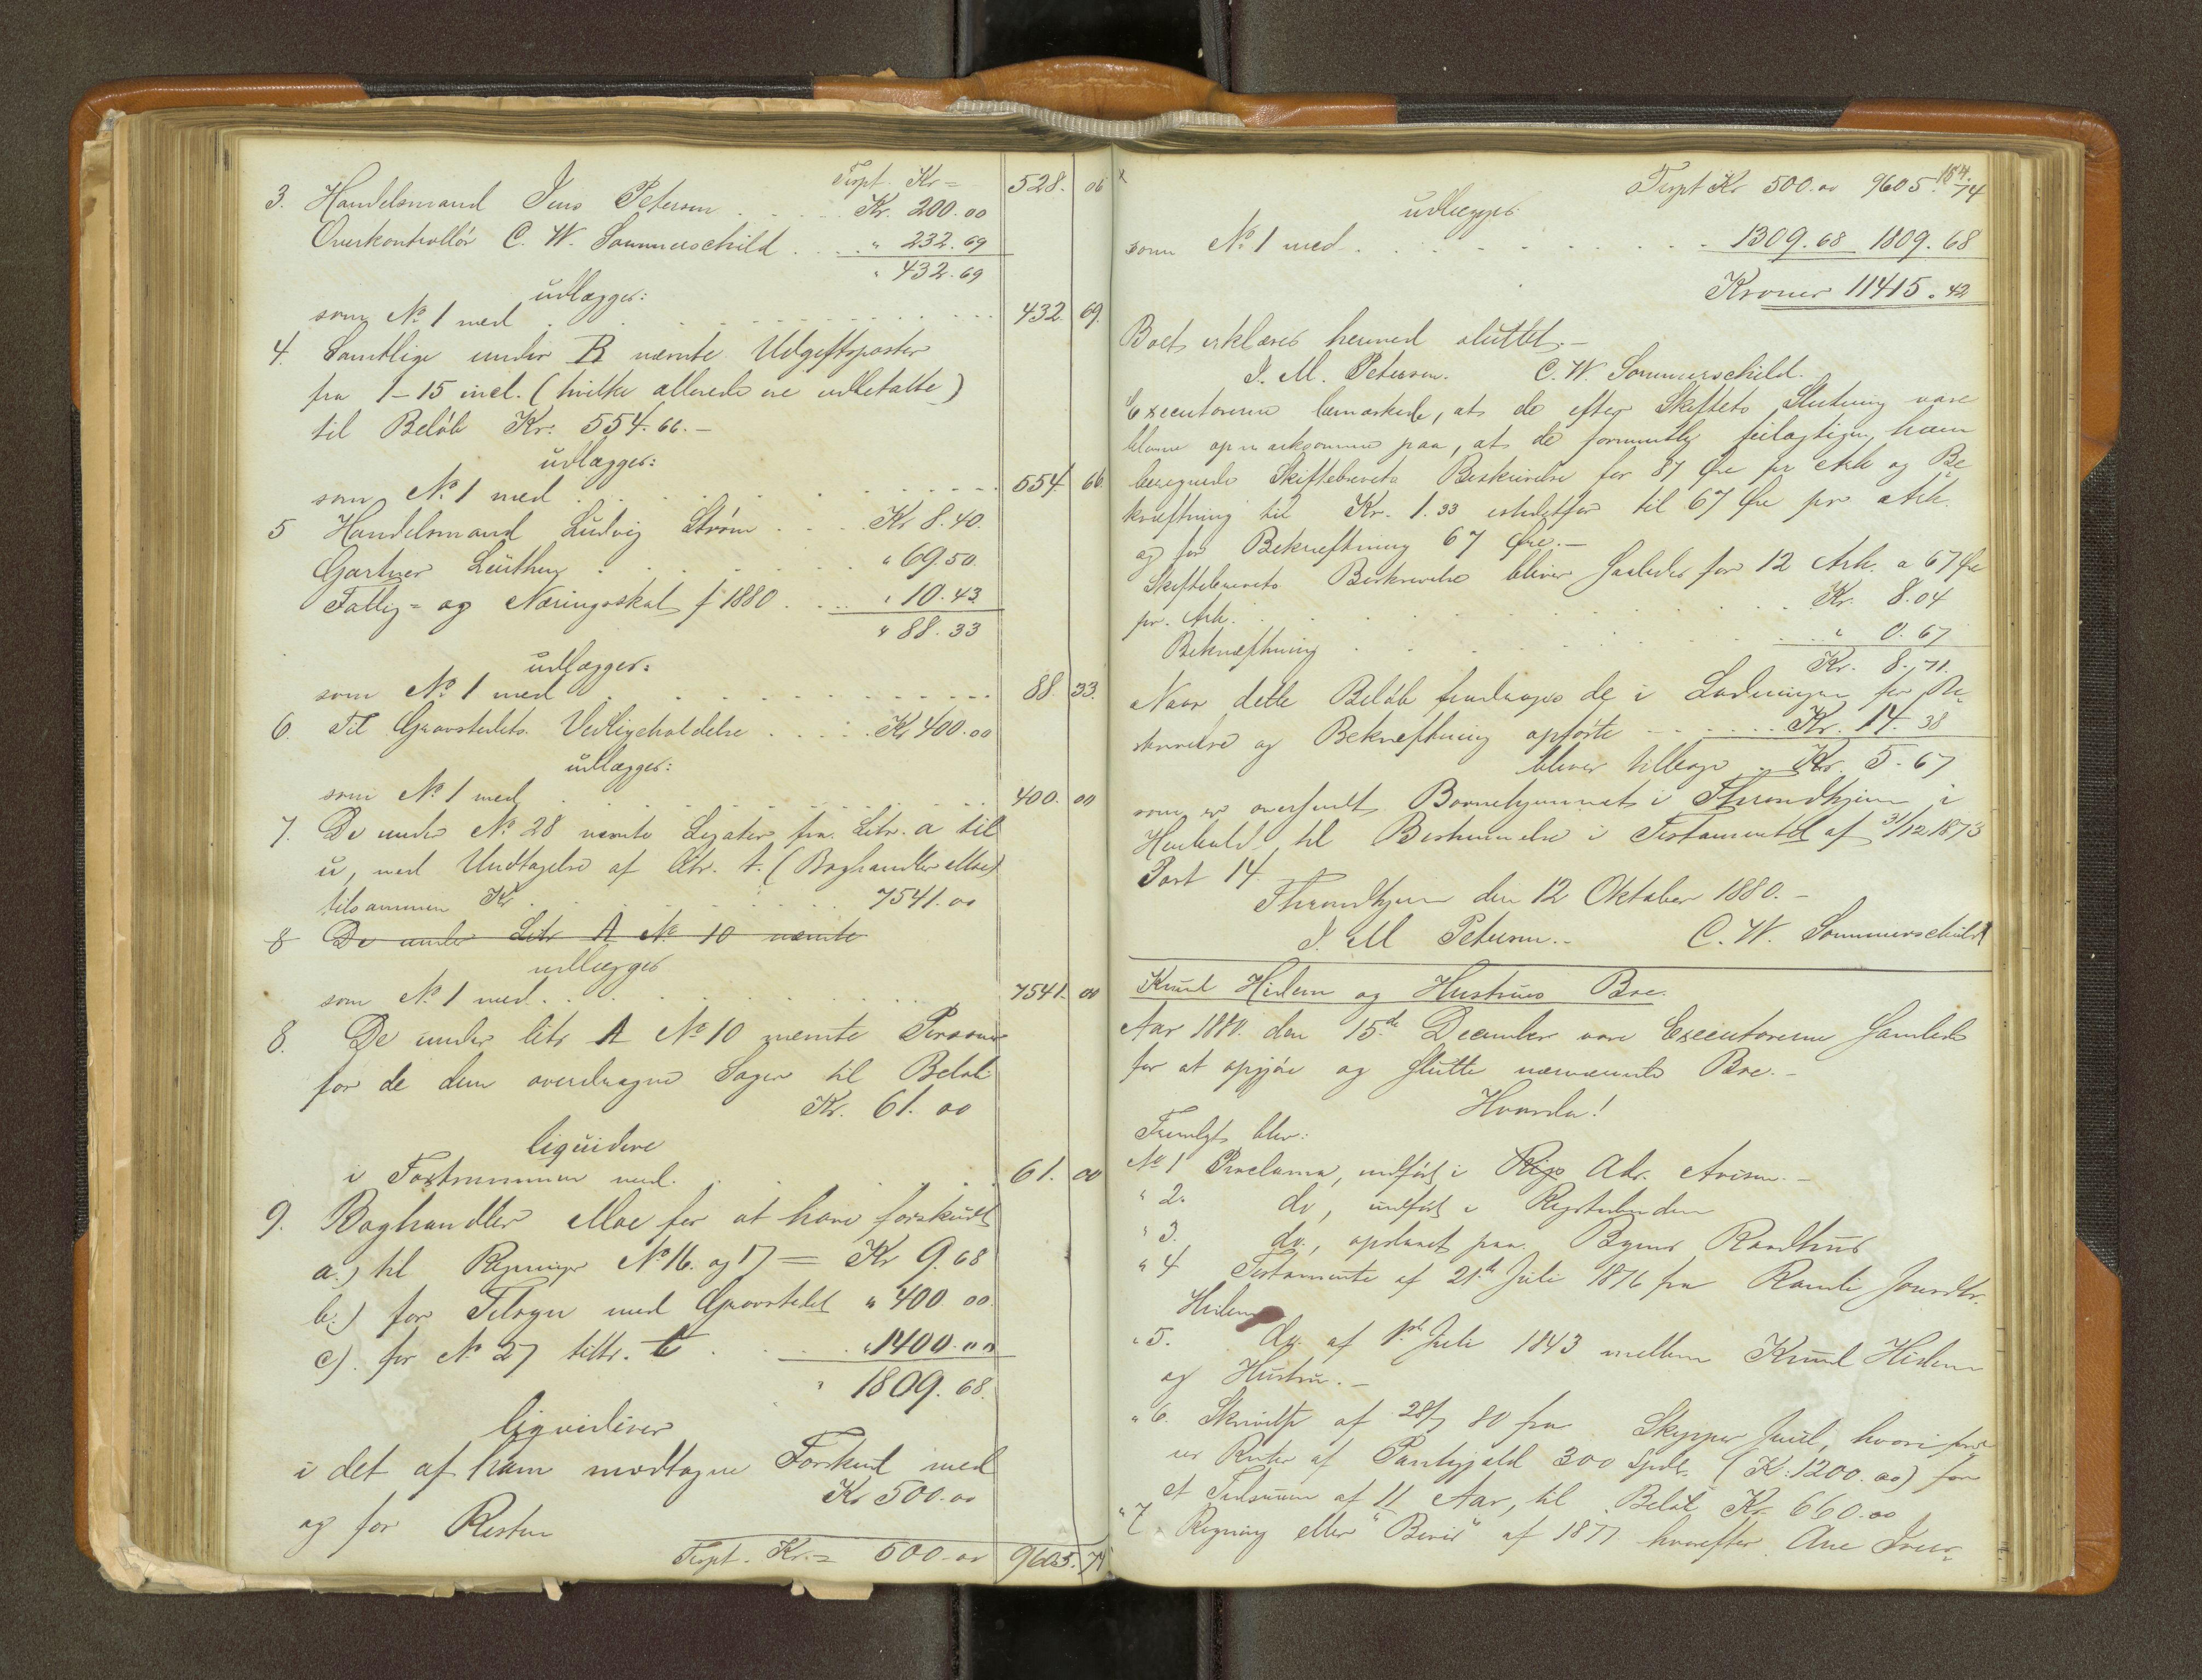 Trspt. Kr = 528. 06
3. Handelsmand Jens Petersen . . . . Kr. 200.00
Overkontrollör C. W. Sommerschild . . . " 232.69
" 432.69
udlægges:
som No 1 med . . . . 432. 69.
4. Samtlige under B nævnte Udgiftsposter
fra 1-15 incl. (hvilke allerede ere udbetalte)
til Beløb Kr. 554.66.-
udlægges:
som No 1 med . . . . 554. 66.
5 Handelsmand Ludvig Ström . . . Kr 8.40.
Gartner Lüthen . . . . " 69.50.
Fattig= og Næringsskat f 1880 . . . " 10.43
" 88.33
udlægges:
som No 1 med . . . . 88. 33.
6. Til Gravstedets Vedligeholdelse . . . . Kr 400.00
udlægges:
som No 1 med . . . . 400. 00
7. De under No 28 nævnte Legater fra Litr. a til
u, med Undtagelse af litr. t. (Boghandler Moe)
tilsammen Kr . . . . 7541.00
8 De under Litr A No 10 nævnte
udlægges
som No 1 med . . . . 7541. 00
8. De under litr A No 10 nævnte Personer
for de dem overdragne Sager til Beløb
Kr. 61.00
liquidere
i Fortrummen med . . . . 61. 00
9. Boghandler Moe for at have forskudt
a.) til Regninger No 16. og 17 = Kr 9.68
b.) for Tilsyn med Gravstedet " 400 00.
c). for No 27 littr. t . . . . " 1400.00
" 1809.68.
liqviderer
i det af ham modtagne Forskud med
Kr 500.00
og for Resten
Trspt. Kr.= 500.00 9605. 74
154.
Trspt Kr 500.00 9605.74
udlægges
som No 1 med . . . . 1309.68 1809.68
Kroner 11415.42
Boets erklæres hermed sluttet.-
J. M. Petersen. C. W. Sommerschild.
Executorerne bemærkede, at de efter Skiftets Slutning vare
blevne opmærksomme paa, at de formentlig feilagtigen have
beregnede Skiftebrevets Beskrivelse for 87 Øre pr Ark og Be
kræftning til Kr. 1.33 istedetfor til 67 Øre pr Ark.
og for Bekræftning 67 Øre.-
Skiftebrevets Beskrivelse bliver saaledes for 12 Ark. a 67 Øre
pr. Ark. . . . . Kr. 8.04
Bekræftning . . . . " 0.67
Kr. 8.71.
Naar dette Beløb fradrages de i Ladningen for Be
skrivelse og Bekræftning opførte . . . . Kr. 14.38
bliver tilbage . Kr. 5.67
som er oversendt Børnehjemmet i Throndhjem i
Henhold til Bestemmelse i Testamentet af 31/12 1873
Post 14.
Throndhjem den 12 Oktober 1880.-
J. M Petersen.- C. W. Sommerschild
Knud Hidem og Hustrus Boe.
Aar 1880. den 15.de December vare Executorerne samlede
for at opgjøre og slutte nævnte Boe.-
Hvorda!
Fremlagt blev:
No 1 Proclama, indført i Rigs Adr. Avisen.-
" 2. do, indført i Rigstidenden
" 3. do., opslaaet paa Byens Raadhus
" 4 Testamente af 21.de Juli 1876 fra Randi Jonsdtr.
Hidem
" 5. do. af 1.ste Juli 1843 mellem Knud Hidem
og Hustru.-
" 6. Skrivelse af 28/7 80 fra Skipper Juul, hvori
er Renter af Pantegjæld 300 Spdlr. (Kr: 1200.00) for
et Tidsrum af 11 Aar, til Beløb Kr 660.00
" 7. Regning eller "Beviis" af 1877 hvorefter Ane Iver=